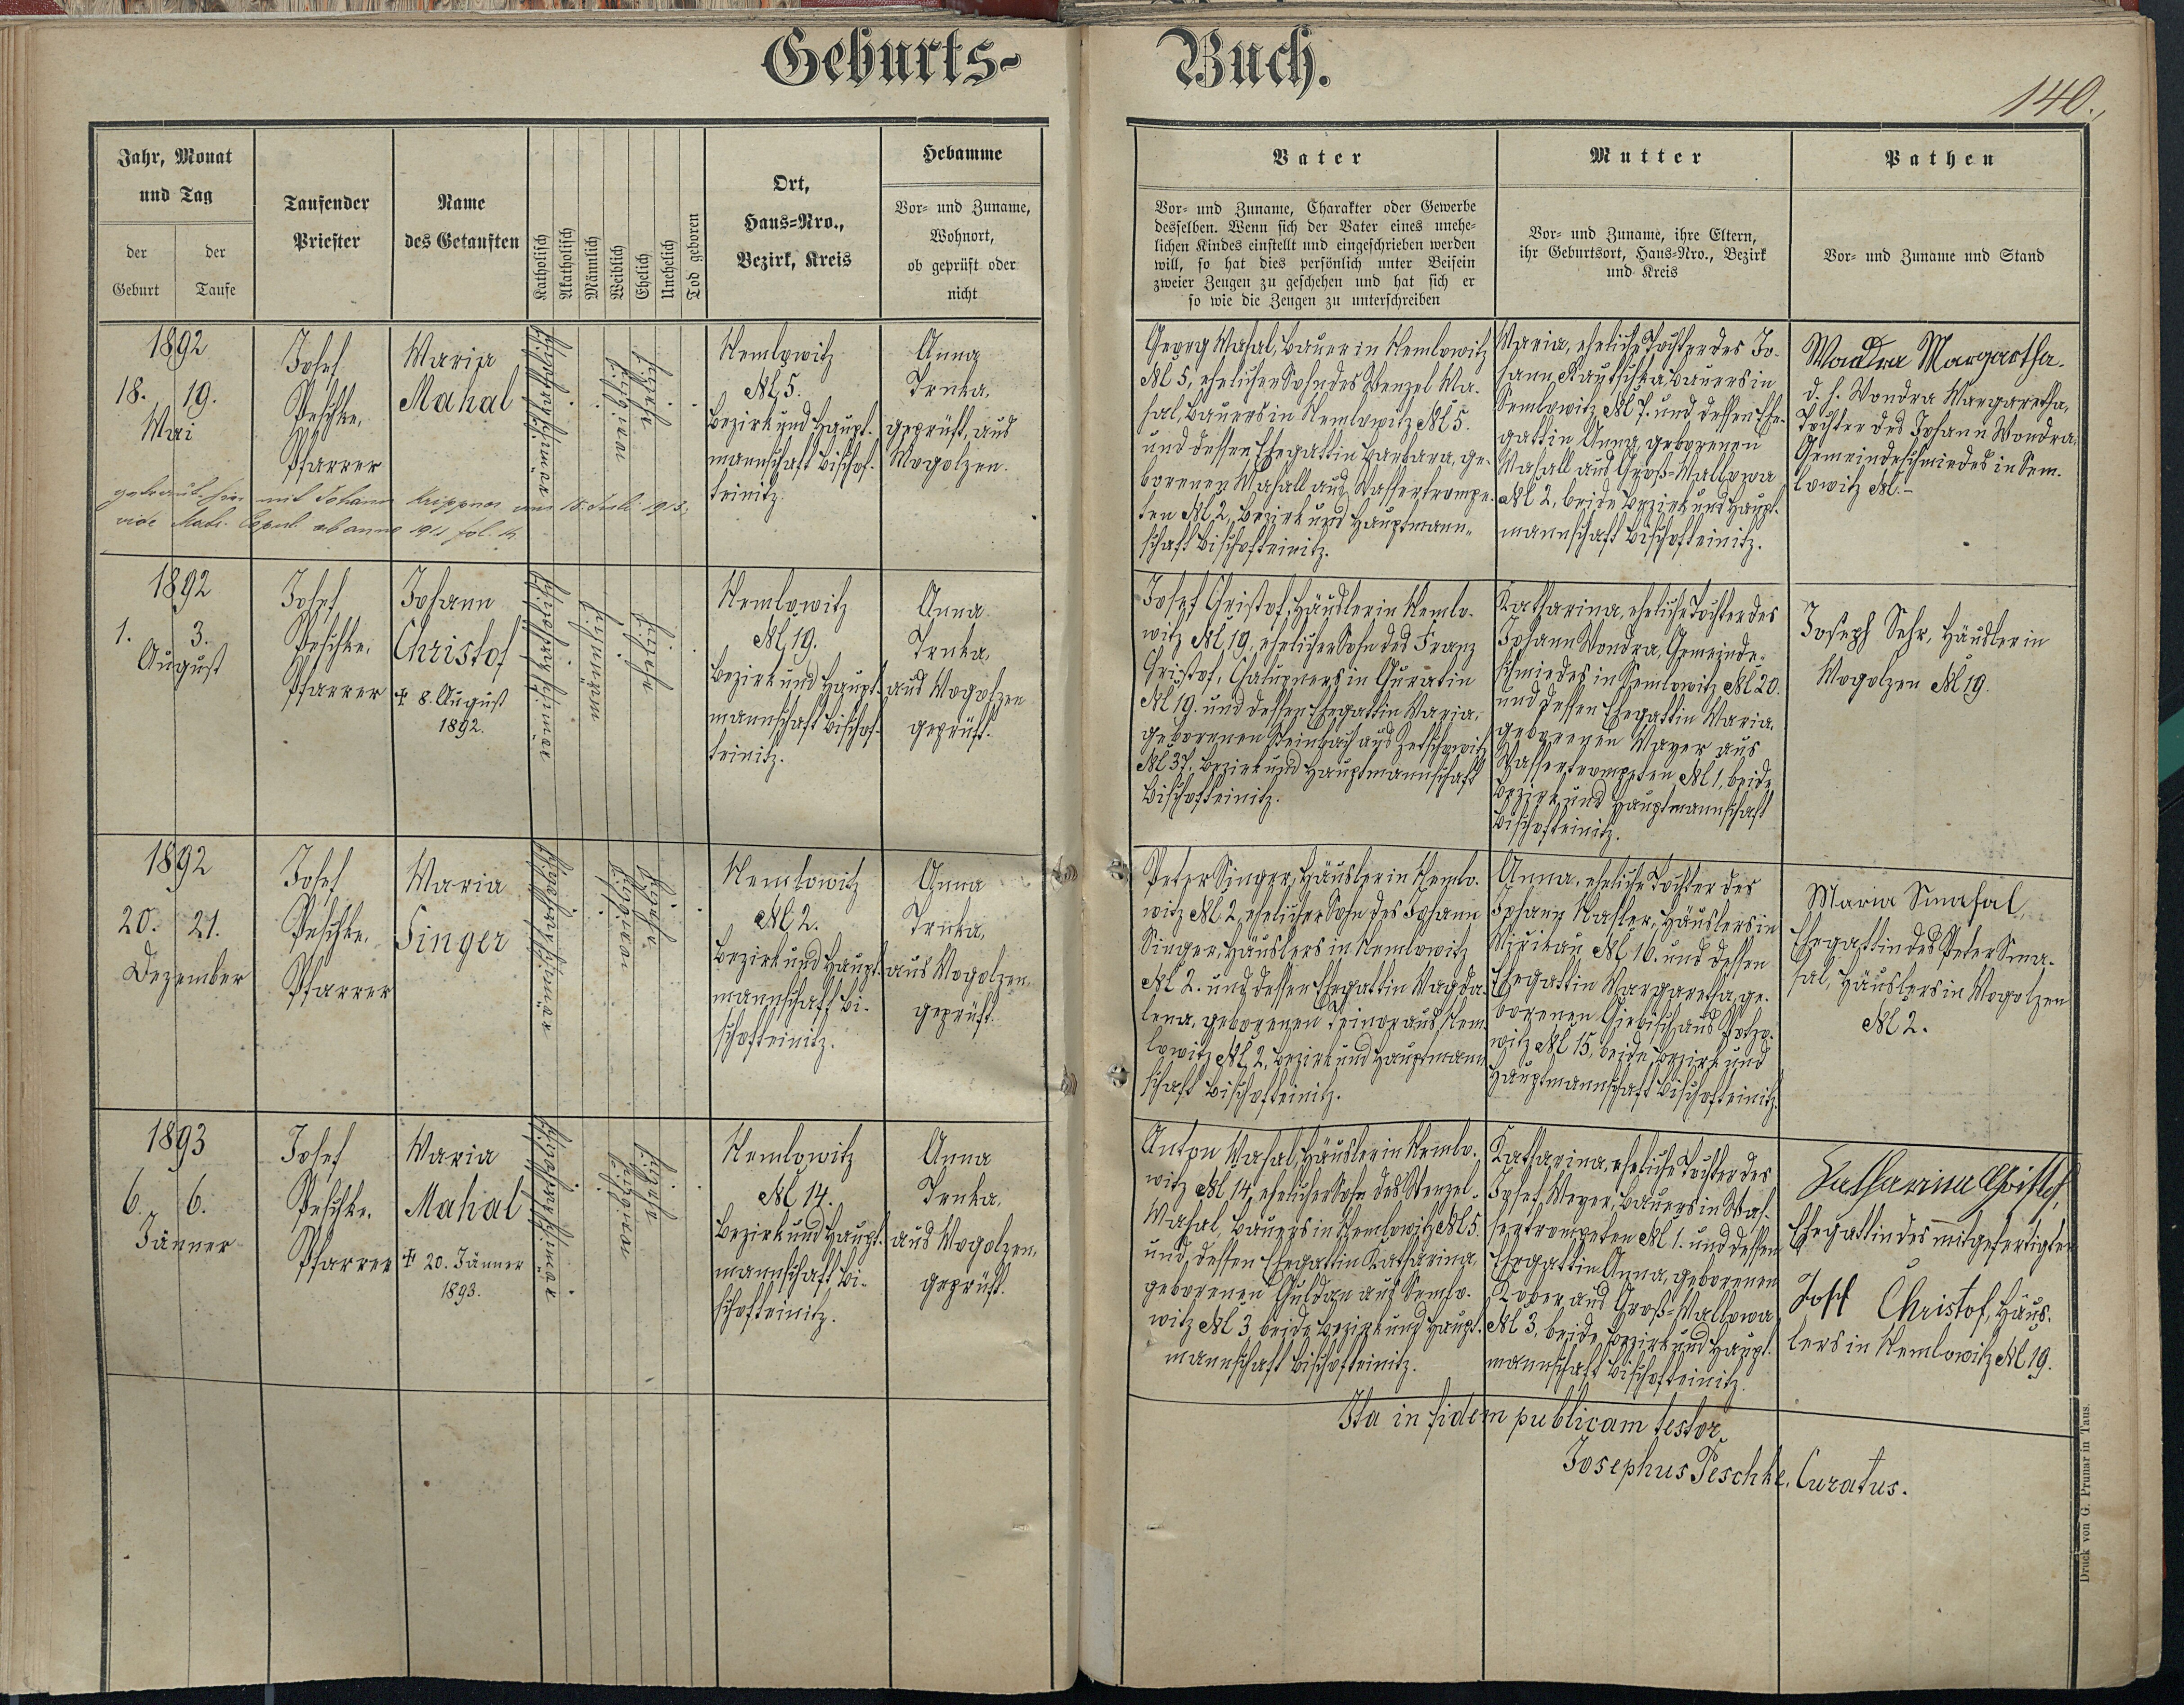 Geburts-
Buch.
140.
Jahr, Monat
und Tag
der
Geburt
der
Taufe
Taufender
Priester
Name
des Getauften
Katholisch
Akatholisch
Männlich
Weiblich
Ehelich
Unehelich
Tod geboren
Ort,
Haus-Nro.,
Bezirk, Kreis
Hebamme
Vor- und Zuname,
Wohnort,
ob geprüft oder
nicht
Vater
Vor- und Zuname, Charakter oder Gewerbe
desselben. Wenn sich der Vater eines unehe-
lichen Kindes einstellt und eingeschrieben werden
will, so hat dies persönlich unter Beisein
zweier Zeugen zu geschehen und hat sich er
so wie die Zeugen zu unterschreiben
Mutter
Vor- und Zuname, ihre Eltern,
ihr Geburtsort, Haus-Nro., Bezirk
und Kreis
Pathen
Vor- und Zuname und Stand
1892
18. 19.
Mai
Josef
Peschke,
Pfarrer
Maria
Mahal
Nemlowitz
№ 5.
Bezirk und Haupt-
mannschaft Bischof-
teinitz.
Anna
Trnka,
geprüft, aus
Mogolzen.
Georg Mahal, Bauer in Nemlowitz
№ 5, ehelicher Sohn des Wenzel Ma-
hal, Bauers in Nemlowitz № 5.
und dessen Ehegattin Barbara, ge-
borenen Mahall aus Wassertrompe-
ten № 2, Bezirk und Hauptmann-
schaft Bischofteinitz.
Maria, eheliche Tochter des Jo-
hann Bauers in
Semlowitz № 7. und dessen Ehe-
gattin Anna, geborenen
Mahall aus Groß-Mallowa
№ 2, beide Bezirk und Haupt-
mannschaft Bischofteinitz.
Wondra Margaretha.
d. h. Wondra Margaretha,
Tochter des Johann Wondra,
Gemeindeschmiedes in Sem-
lowitz №.-
getraut hier mit Johann Krippner am 18. Juli 1913,
vide Matr. Copul. ab anno 1911 fol. 14
1892
1. 3.
August
Josef
Peschke,
Pfarrer
Johann
Christof
✝ 8. August
1892.
Nemlowitz
№ 19.
Bezirk und Haupt-
mannschaft Bischof-
teinitz.
Anna
Trnka,
aus Mogolzen
geprüft.
Josef Christof, Häusler in Nemlo-
witz № 19, ehelicher Sohn des Franz
Christof, Chalupners in
№ 19. und dessen Ehegattin Maria,
geborenen Steinbach aus
№ 37, Bezirk und Hauptmannschaft
Bischofteinitz.
Katharina, eheliche Tochter des
Johann Wondra, Gemeinde-
schmiedes in Semlowitz № 20.
und dessen Ehegattin Maria,
geborenen Mayer aus
Wassertrompeten № 1, beide
Bezirk und Hauptmannschaft
Bischofteinitz.
Joseph Sehr, Häusler in
Mogolzen № 19.
1892
20. 21.
Dezember
Josef
Peschke,
Pfarrer
Maria
Singer
Nemlowitz
№ 2.
Bezirk und Haupt-
mannschaft Bi-
schofteinitz.
Anna
Trnka,
aus Mogolzen,
geprüft.
Peter Singer, Häusler in Nemlo-
witz № 2, ehelicher Sohn des Johann
Singer, Häuslers in Nemlowitz
№ 2. und dessen Ehegattin Magda-
lena, geborenen aus Nem-
lowitz № 2, Bezirk und Hauptmann-
schaft Bischofteinitz.
Anna, eheliche Tochter des
Johann Häuslers in
Mirikau № 16. und dessen
Ehegattin Margaretha, ge-
borenen aus
witz № 15, beide Bezirk und
Hauptmannschaft Bischofteinitz.
Maria Smahal,
Ehegattin des Peter Sma-
hal, Häuslers in Mogolzen
№ 2.
1893
6. 6.
Jänner
Josef
Peschke,
Pfarrer
Maria
Mahal
✝ 20. Jänner
1893.
Nemlowitz
№ 14.
Bezirk und Haupt-
mannschaft Bi-
schofteinitz.
Anna
Trnka,
aus Mogolzen,
geprüft.
Anton Mahal, Häusler in Nemlo-
witz № 14, ehelicher Sohn des Wenzel
Mahal, Bauers in Nemlowitz № 5.
und dessen Ehegattin Katharina,
geborenen Guldan aus Semlo-
witz № 3, beide Bezirk und Haupt-
mannschaft Bischofteinitz.
Katharina, eheliche Tochter des
Josef Meyer, Bauers in Was-
sertrompeten № 1. und dessen
Ehegattin Anna, geborenen
Kober aus Groß-Mallowa
№ 3, beide Bezirk und Haupt-
mannschaft Bischofteinitz.
Katharina Christof,
Ehegattin des mitgefertigten
Josef Christof, Häus-
lers in Nemlowitz № 19.
Ita in fidem publicam testor
Josephus Peschke, Curatus.
Druck von G. Prunar in Taus.